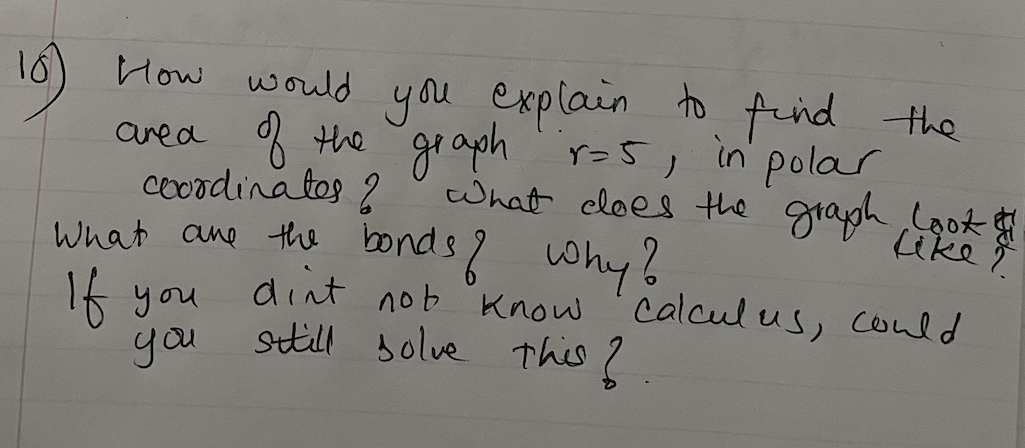 10) How would you explain to find the
area of the graph r=5, in polar
coordinates? What does the graph look
like?
What are the bonds? Why?
If you dint not know calculus, could
you still solve this?.